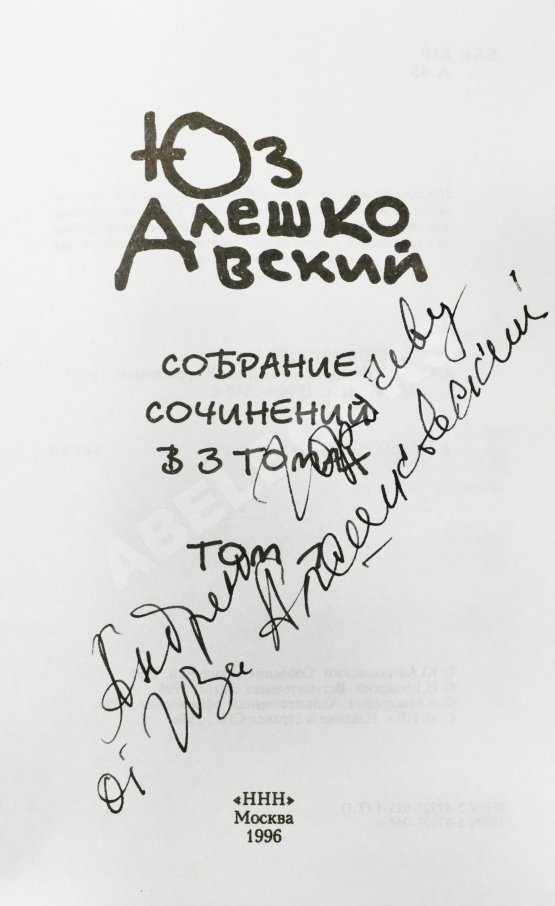 Юз
Алешко
вский
СОБРАНИЕ
СОЧИНЕНИЙ
В 3 ТОМАХ
ТОМ
Андрею
от Юза Алешковский
«ННН»
Москва
1996